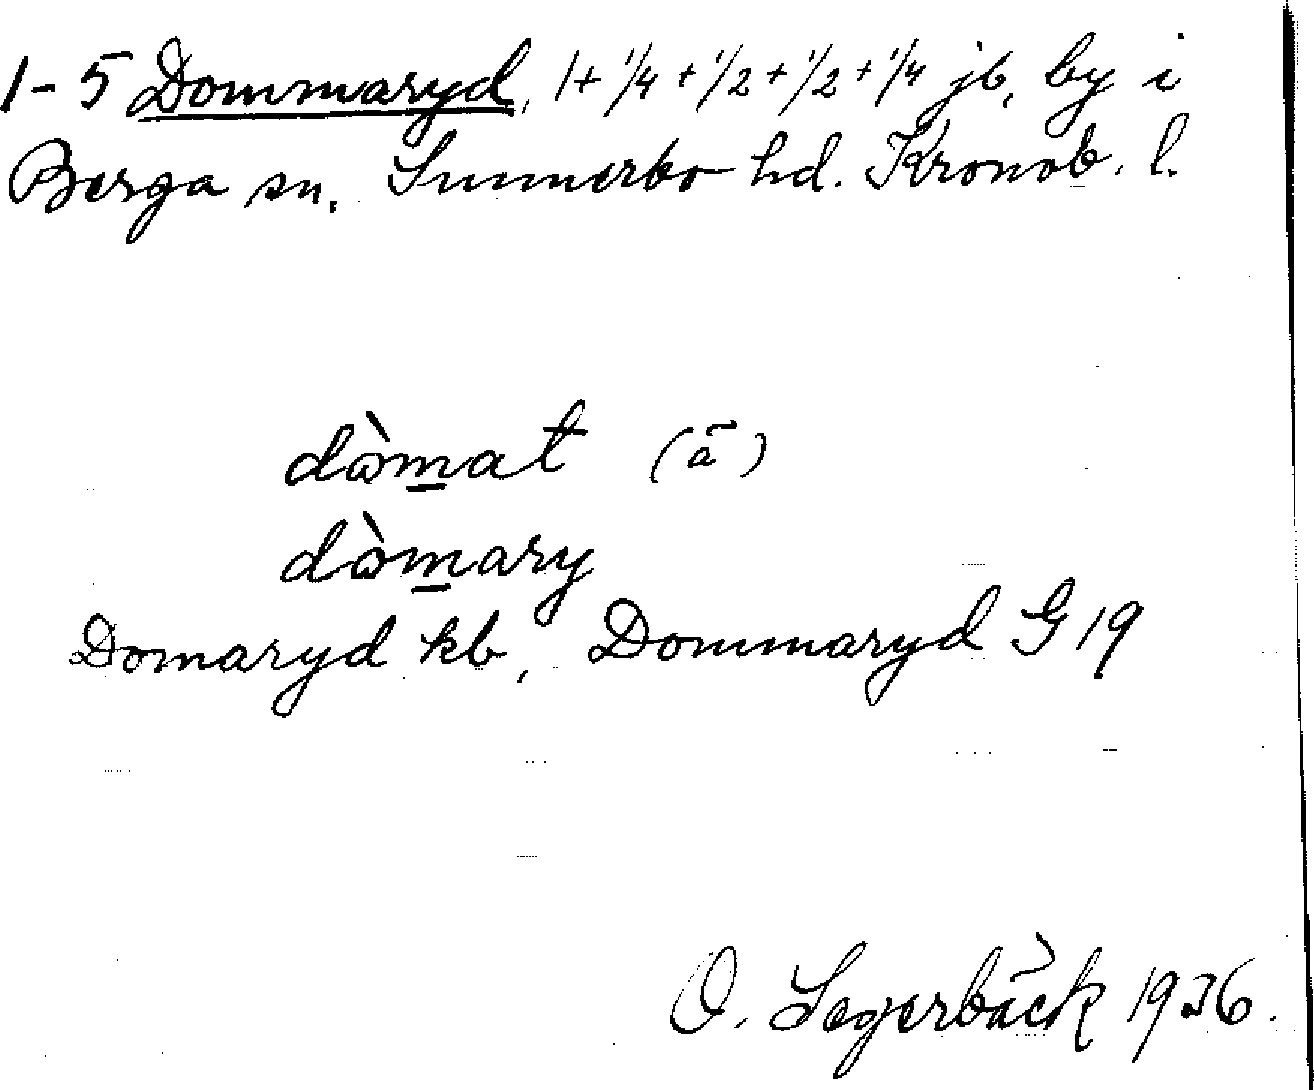 1-5 Dommaryd, 1+1/4+1/2+1/2+1/4 jb, by i
Berga sn. Sunnerbo hd. Kronob. l.
dòmat (ā)
dòmary
Domaryd kb, Dommaryd G 19
O. Segerbäck 1936.